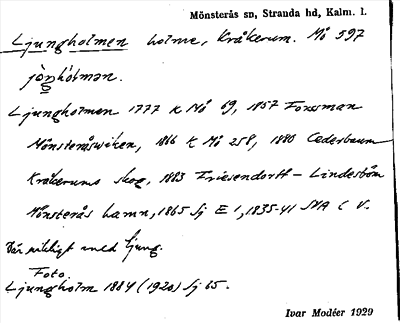 Mönsterås sn, Stranda hd, Kalm. l.
Ljungholmen holme, Kråkerum. Mö 597
jòŋhólman.
Ljungholmen 1777 K Mö 69, 1857 Forssman
Mönsteråsviken, 1866 K Mö 258, 1880 Cederbaum
Kråkerums skog, 1883 Friesendorff - Lindeström
Mönsterås hamn, 1865 Sj E 1, 1835-41 SKA C V.
Där rikligt med ljung.
Foto.
Ljungholm 1884 (1920) Sj 65.
Ivar Modéer 1929